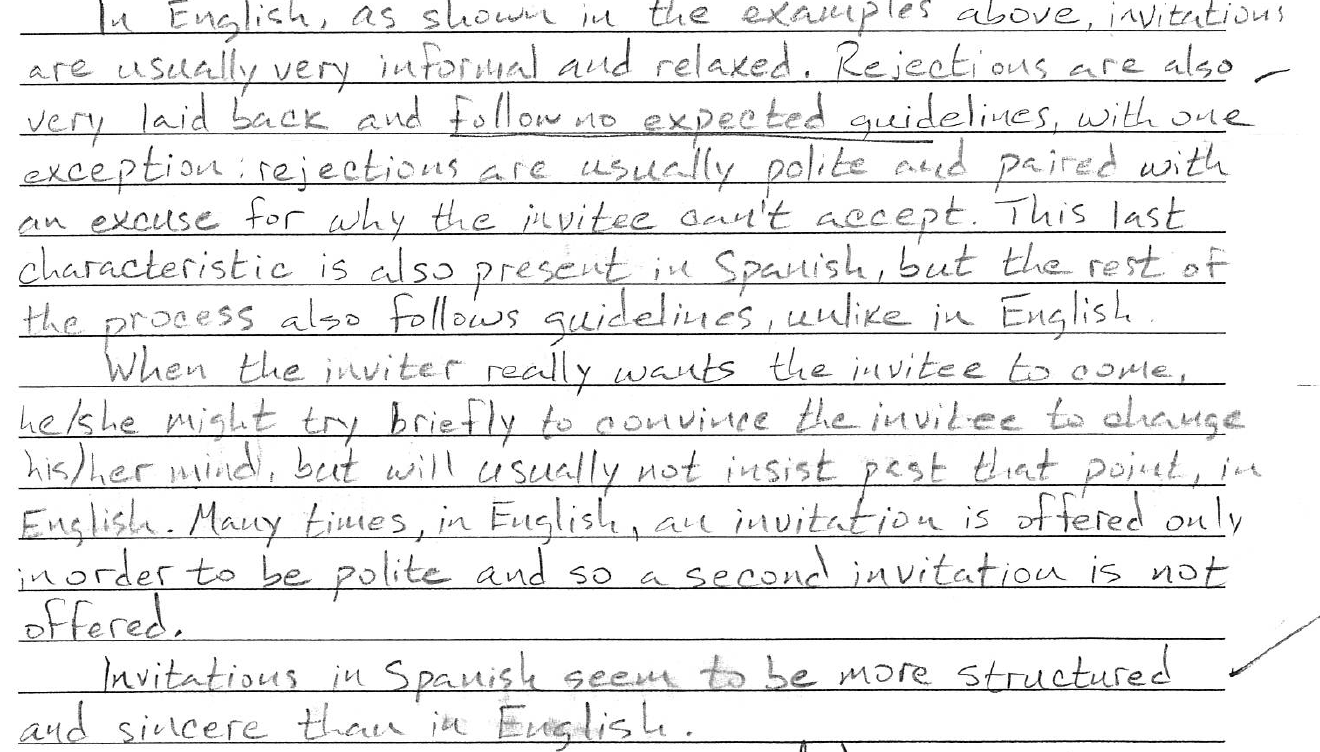 In English, as shown in the examples above, invitations
are usually very informal and relaxed. Rejections are also
very laid back and follow no expected guidelines, with one
exception: rejections are usually polite and paired with
an excuse for why the invitee can't accept. This last
characteristic is also present in Spanish, but the rest of
the process also follows guidelines, unlike in English.
When the inviter really wants the invitee to come,
he/she might try briefly to convince the invitee to change
his/her mind, but will usually not insist past that point, in
English. Many times, in English, an invitation is offered only
in order to be polite and so a second invitation is not
offered.
Invitations in Spanish seem to be more structured
and sincere than in English.